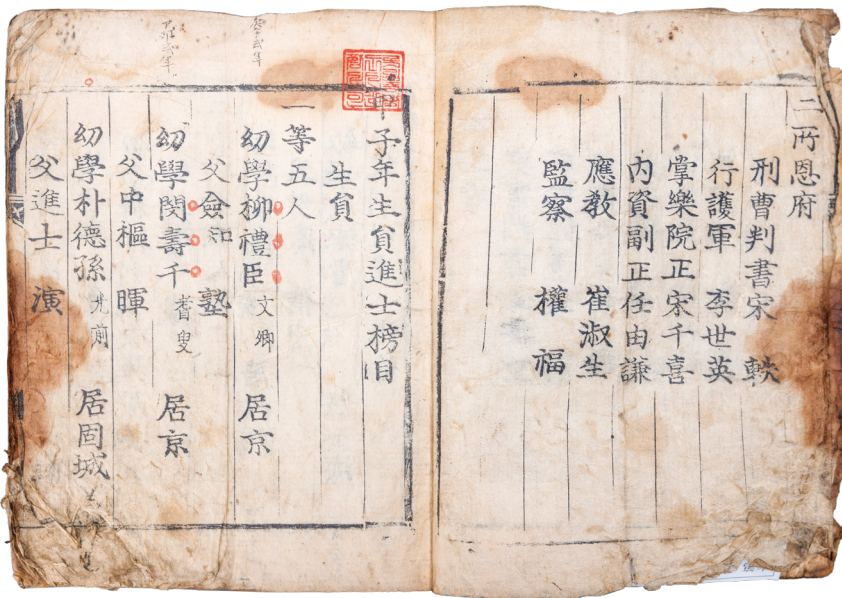 二所恩府
刑曹判書宋 軼
行護軍 李世英
掌樂院正宋千喜
內資副正任由謙
應教 崔淑生
監察 權福
甲子年生員進士榜目
生員
一等五人
幼學柳禮臣 文卿 居京
父僉知 塾
幼學閔壽千 耆叟 居京
父中樞 暉
幼學朴德孫 居固城
父進士 演